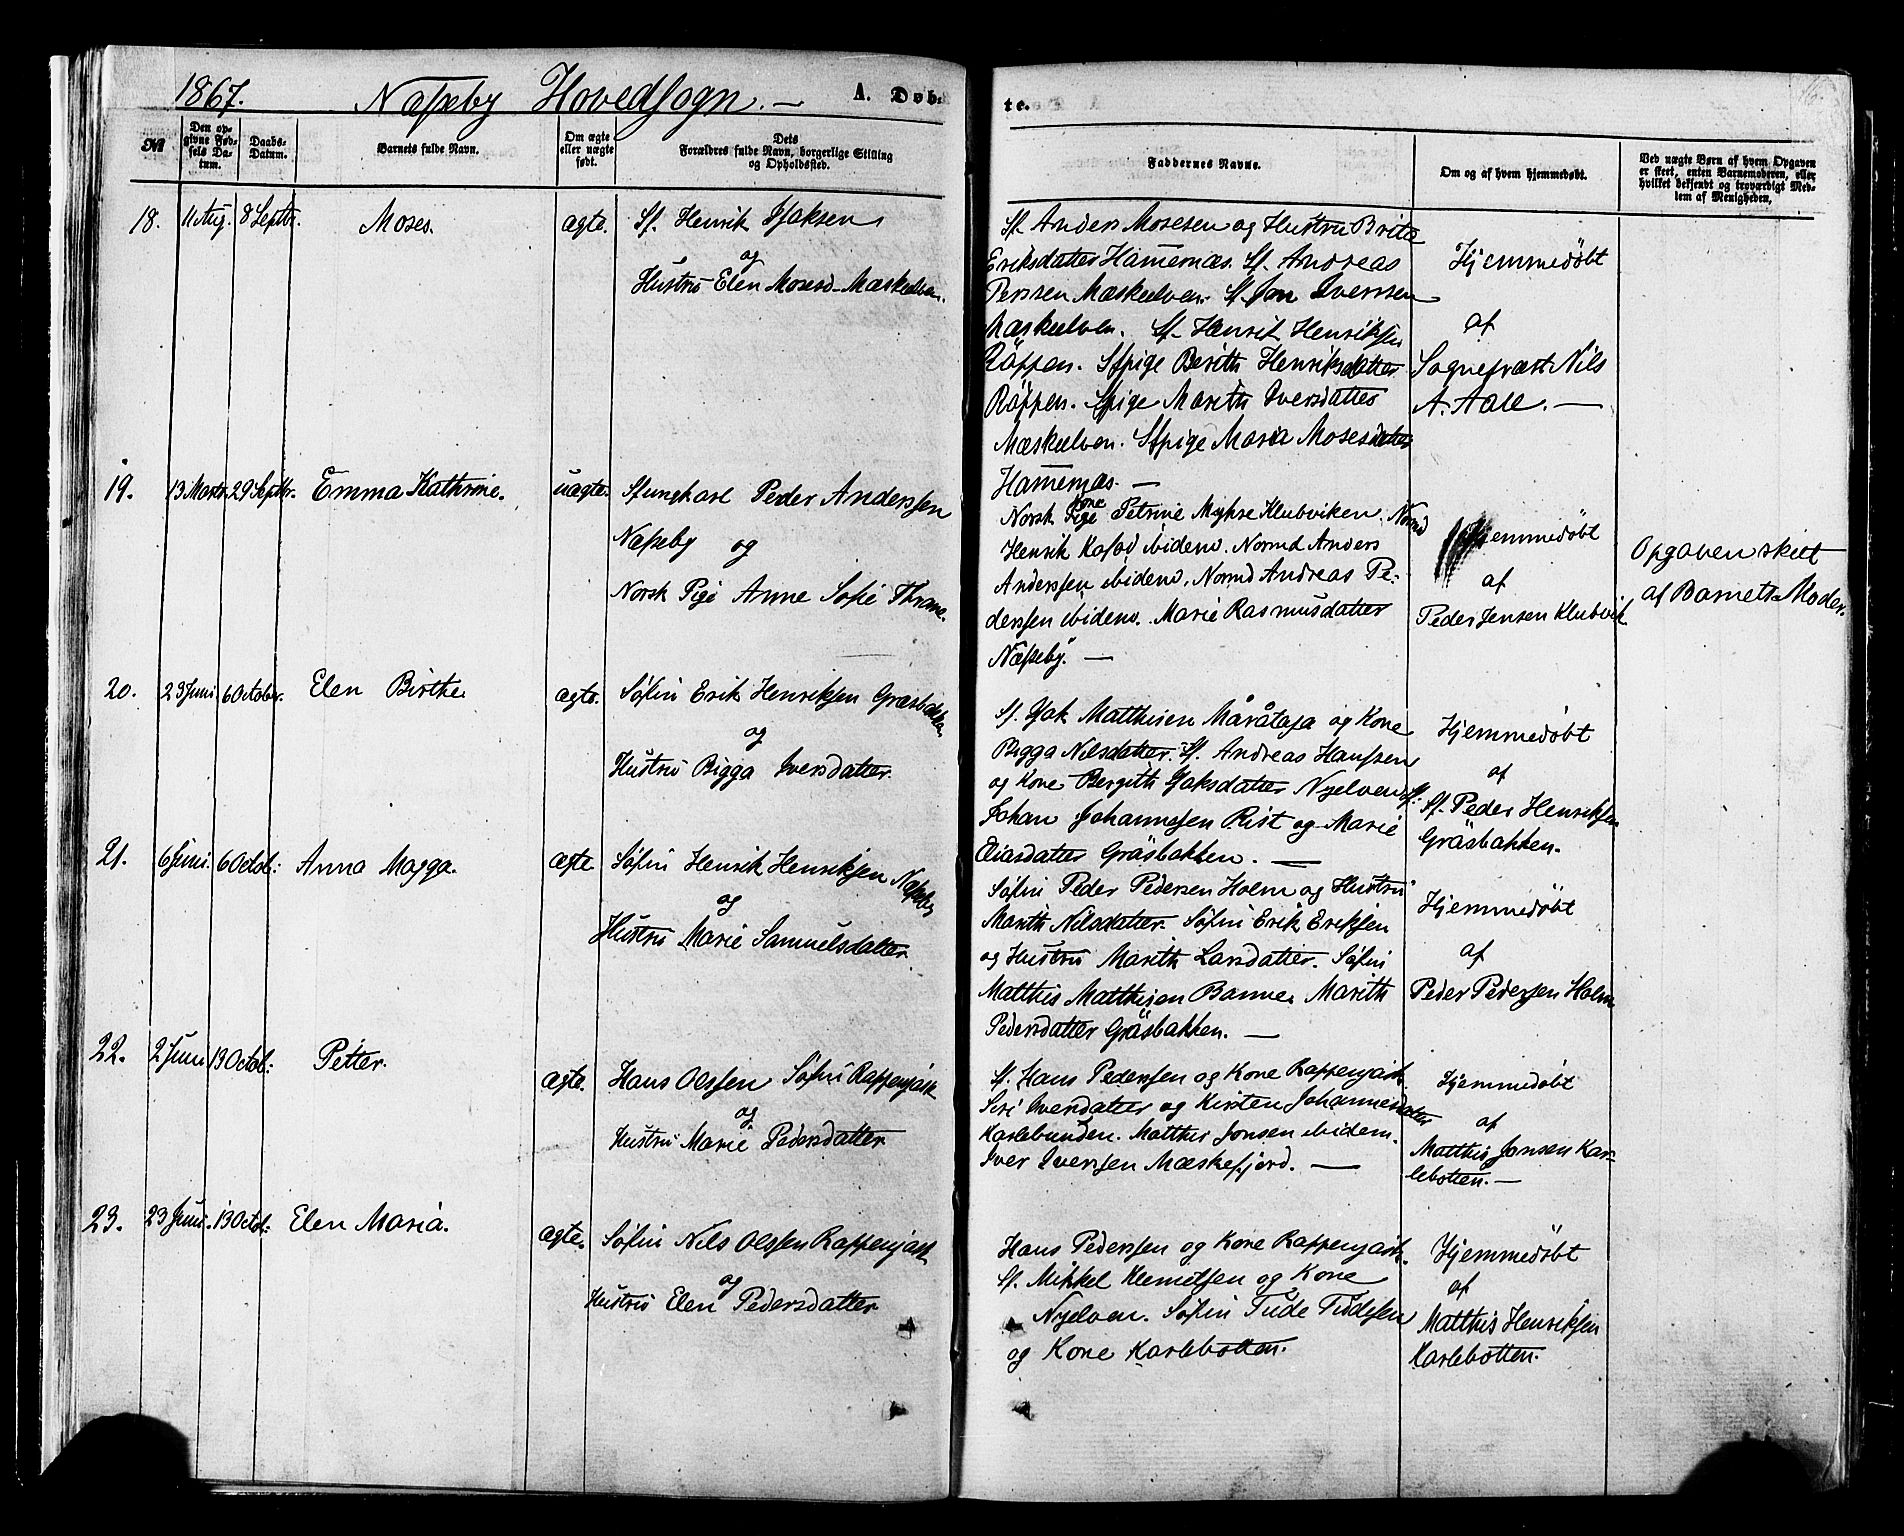 1867. Næsseby Hovedsogn. — A. Døb-
te.
№
Den op-
givne Fød-
sels Da-
tum.
Daabs-
Datum.
Barnets fulde Navn.
Om ægte
eller uægte
født.
Dets
Forældres fulde Navn, borgerlige Stilling
og Opholdssted.
Faddernes Navne.
Om og af hvem hjemmedøbt.
Ved uægte Børn af hvem Opgaven
er skeet, enten Barnemoderen, eller
hvilket bekjendt og troværdigt Med-
lem af Menigheden.
18. 11 Aug. 8 Septbr. Moses. ægte. Sf. Henrik Isaksen
og
Hustru Elen Mosesd. Mæskelven.
Sf. Anders Mosesen og Hustru Brita
Eriksdatter Hamernæs. Sf. Andreas
Perssen Mæskelven. Sf. Jon Iverssen
Mæskelven. Sf. Henrik Henriksen
Röppen. Sfpige Berith Henriksdatter
Röppen. Sfpige Marith Iversdatter
Mæskelven. Sfpige Maria Mosesdatter
Hamernæs. —
Hjemmedøbt
af
Sognepræst Nils
A. Aall. —
19. 13 Marts. 29 Septbr. Emma Kathrine. uægte. Sfungkarl Peder Anderssen
Næsseby og
Norsk Pige Anne Sofie Thrane.
Norsk Kone Petrine Myhre Klubviken. Normd
Henrik Kafod ibidem. Normd Anders
Anderssen ibidem. Normd Andreas Pe-
derssen ibidem. Marie Rasmusdatter
Næsseby. —
Hjemmedøbt
af
Peder Jensen Klubvik
Opgaven skeet
af Barnets Moder.
20. 23 Juni. 6 October. Elen Birthe. ægte. Søfin Erik Henriksen Græsbakken
og
Hustru Bigga Iversdatter.
Sf. Isak Matthisen Måråtaja og Kone
Bigga Nilsdatter. Sf. Andreas Hanssen
og Kone Bergith Isaksdatter Nyelven. Sf.
Johan Johannesen Rist og Marie
Eliasdatter Gräsbakken. —
Hjemmedøbt
af
Sf. Peder Henriksen
Gräsbakken.
21. 6 Juni. 6 Octob: Anna Magga. ægte Søfin Henrik Henriksen Næsseby
og
Hustru Marie Samuelsdatter.
Søfin Peder Pedersen Holm og Hustru
Marith Nilsdatter. Søfin Erik Eriksen
og Hustru Marith Larsdatter. Søfin
Matthis Matthisen Banne. Marith
Pedersdatter Gräsbakken. —
Hjemmedøbt
af
Peder Pedersen Holm
22. 2 Juni 13 Octob: Petter. ægte. Hans Olssen Søfin Rappenjask
og
Hustru Marie Pedersdatter
Sf. Hans Pederssen og Kone Rappenjask.
Siri Iversdatter og Kirsten Johannesdatter
Karlebunden. Matthis Jonsen ibidem.
Iver Iverssen Mæskefjord. —
Hjemmedøbt
af
Matthis Jonsen Kar-
lebotten. —
23. 23 Juni. 13 Octob: Elen Maria. ægte. Søfin Nils Olssen Rappenjask
og
Hustru Elen Pedersdatter
Hans Pederssen og Kone Rappenjask.
Sf. Mikkel Klemetsen og Kone
Nyelven. Søfin Tude Tudesen
og Kone Karlebotten.
Hjemmedøbt
af
Matthis Henriksen
Karlebotten.